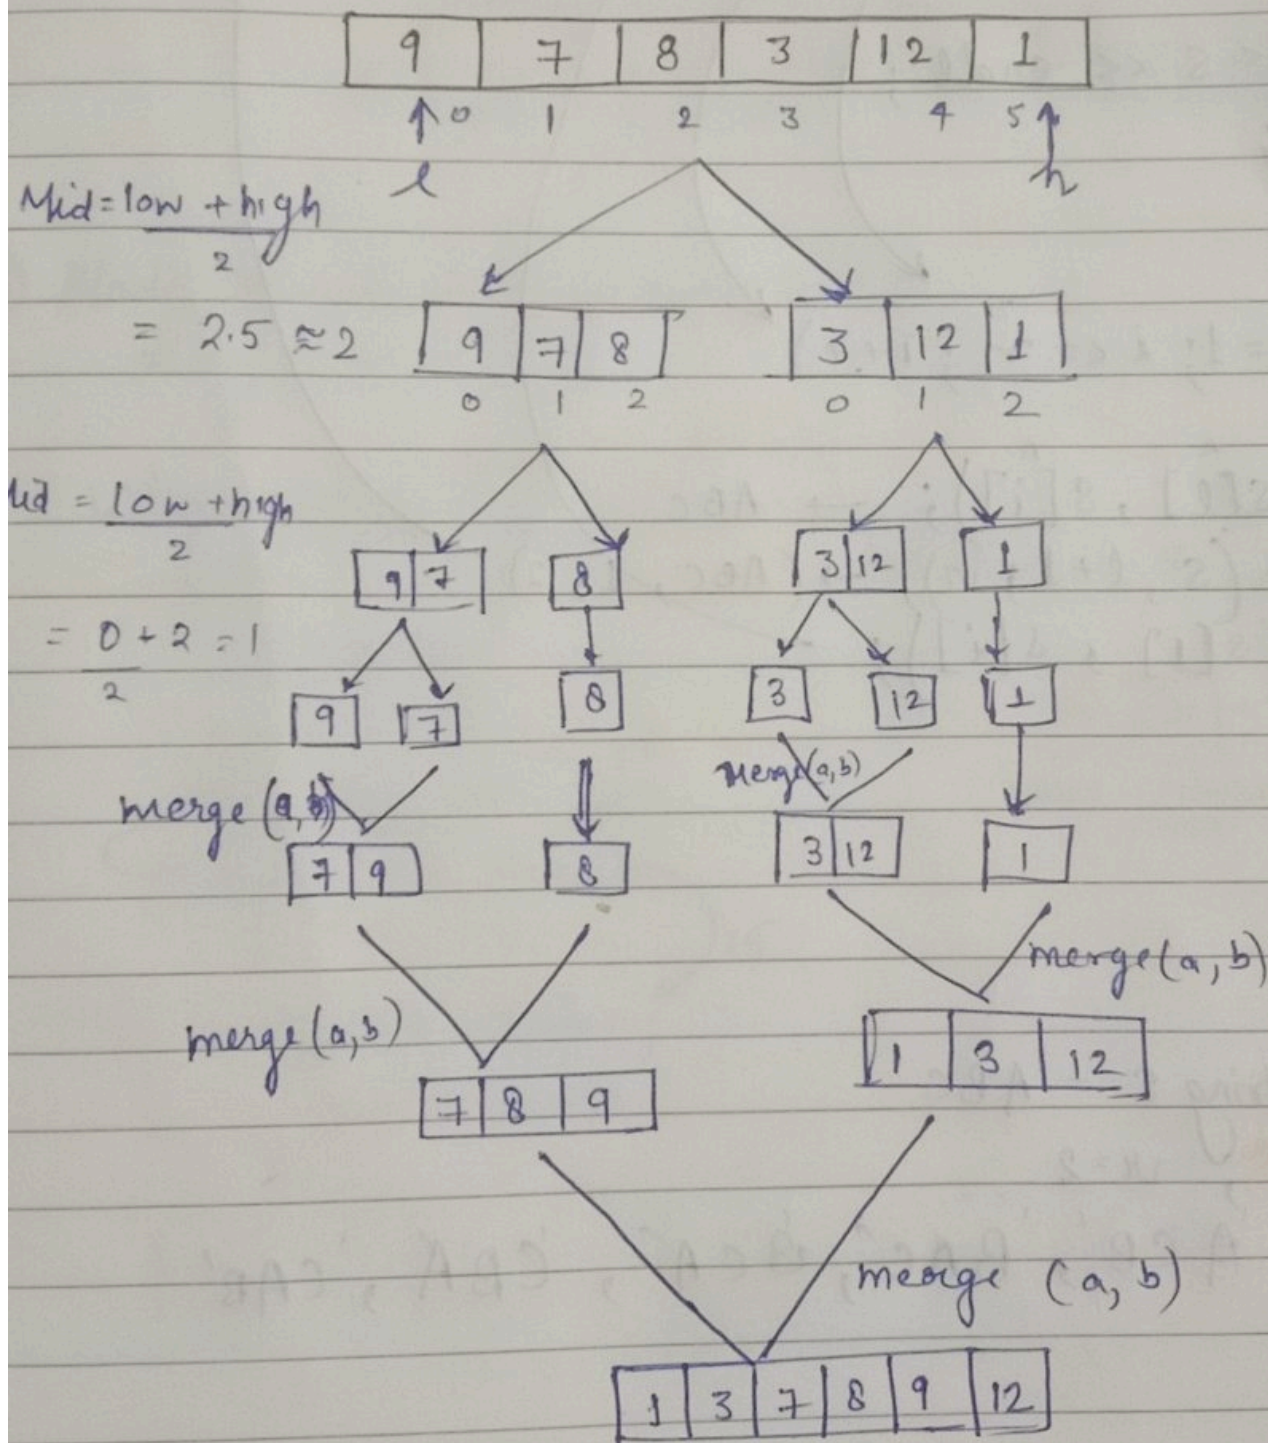 9 7 8 3 12 1
0 1 2 3 4 5
l h
Mid = low + high
2
= 2.5 ≈ 2
9 7 8 3 12 1
0 1 2 0 1 2
Mid = low + high
2
9 7 8 3 12 1
= 0 + 2 = 1
2
9 7 8 3 12 1
merge (a, b) Merge (a, b)
7 9 8 3 12 1
merge (a, b)
merge (a, b)
1 3 12
7 8 9
merge (a, b)
1 3 7 8 9 12